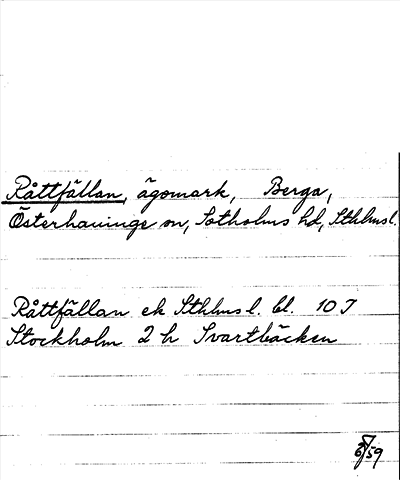 Råttfällan, ägomark, Berga,
Österhaninge sn, Sotholms hd, Sthlms l.
Råttfällan ek Sthlms l. bl. 10 I
Stockholm 2 h Svartbäcken
59